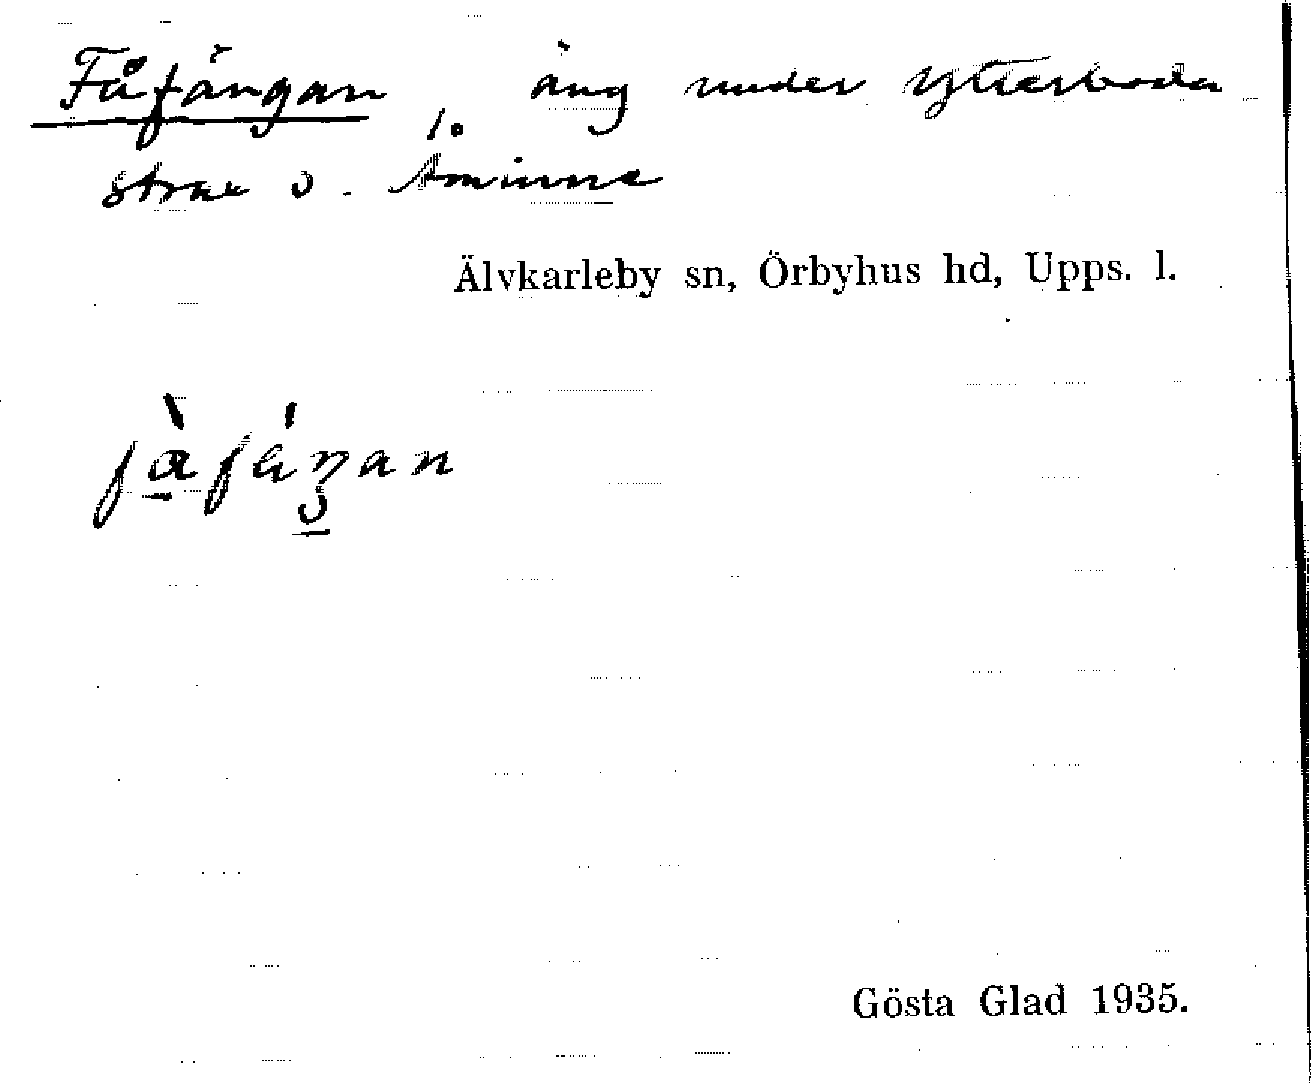 Fåfängan, äng under Ytterboda
strax o. Åminne
Älvkarleby sn, Örbyhus hd, Upps. l.
Gösta Glad 1935.